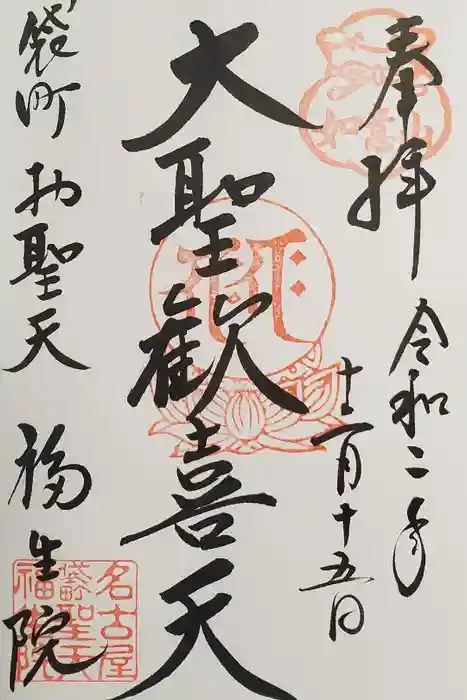 奉拝
令和二年
十二月十五日
大聖歓喜天
袋町お聖天
福生院
名古屋
袋聖天
福生院